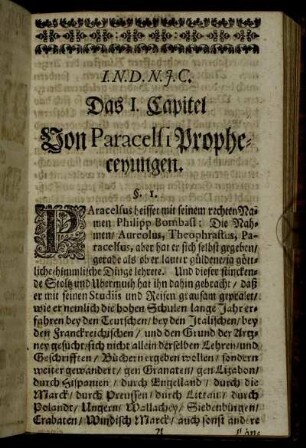 I.N.D.N.J.C.
Das I. Capitel
Von Paracelsi Prophe-
ceyungen.
§. 1.
PAracelsus heisset mit seinem rechten Na-
men Philipp Bombast: Die Nah-
men/ Aureolus, Theophrastus, Pa-
racelsus, aber hat er sich selbst gegeben/
gerade als ob er lauter güldene ja gött-
liche-himmlische Dinge lehrete. Und dieser stincken-
de Stoltz und Ubermuth hat ihn dahin gebracht/ daß
er mit seinen Studiis und Reisen grausam gepralet/
wie er nemlich die hohen Schulen lange Jahr er-
fahren bey den Teutschen/ bey den Italischen/ bey
den Franckreichischen/ und den Grund der Artz-
ney gesucht/ sich nicht allein derselben Lehren/ und
Geschrifften/ Büchern ergeben wollen/ sondern
weiter gewandert/ gen Granaten/ gen Lizabon/
durch Hispanien/ durch Engelland/ durch die
Marck/ durch Preussen/ durch Littau/ durch
Polandt/ Ungern/ Wallachey/ Siebenbürgen/
Crabaten/ Windisch Marck/ auch sonst andere
A
Län-